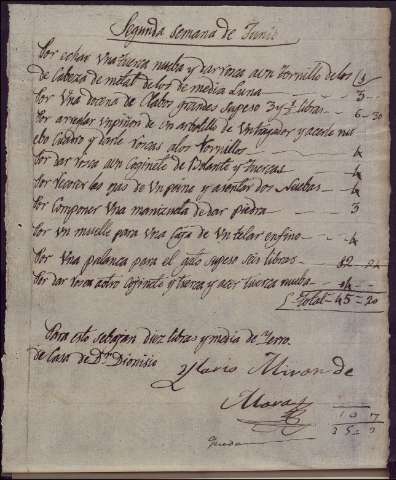 Segunda semana de Junio
Por echar Una tuerca nueba y dar rosca a un tornillo de los
de Cabeza de metal de los de media Luna 3
Por Una docena de Clabos grandes su peso 3 y ½ libras 6 - 30
Por arreglar un piñon de Un arbolillo de Un tragador y acerle nu
ebo Cuadro y darle roscas a los tornillos 4
Por dar rosca a un Cojinete de Bolante y tuercas 4
Por las ojas de Un y asentar dos Nuebas 4
Por Componer Una manizuela de dar piedra 3
Por un muelle para Una Caja de Un telar en fino 4
Por Una palanca para el gato su peso seis libras 12
Por dar rosca a otro Cojinete y tuerza y acer tuerca nueba 4
Total 45 = 20
Para esto se bajan diez libras y media de Yerro.
de Casa de Dn Dionisio
Ylario Miron de
Mora
10 7
Queda